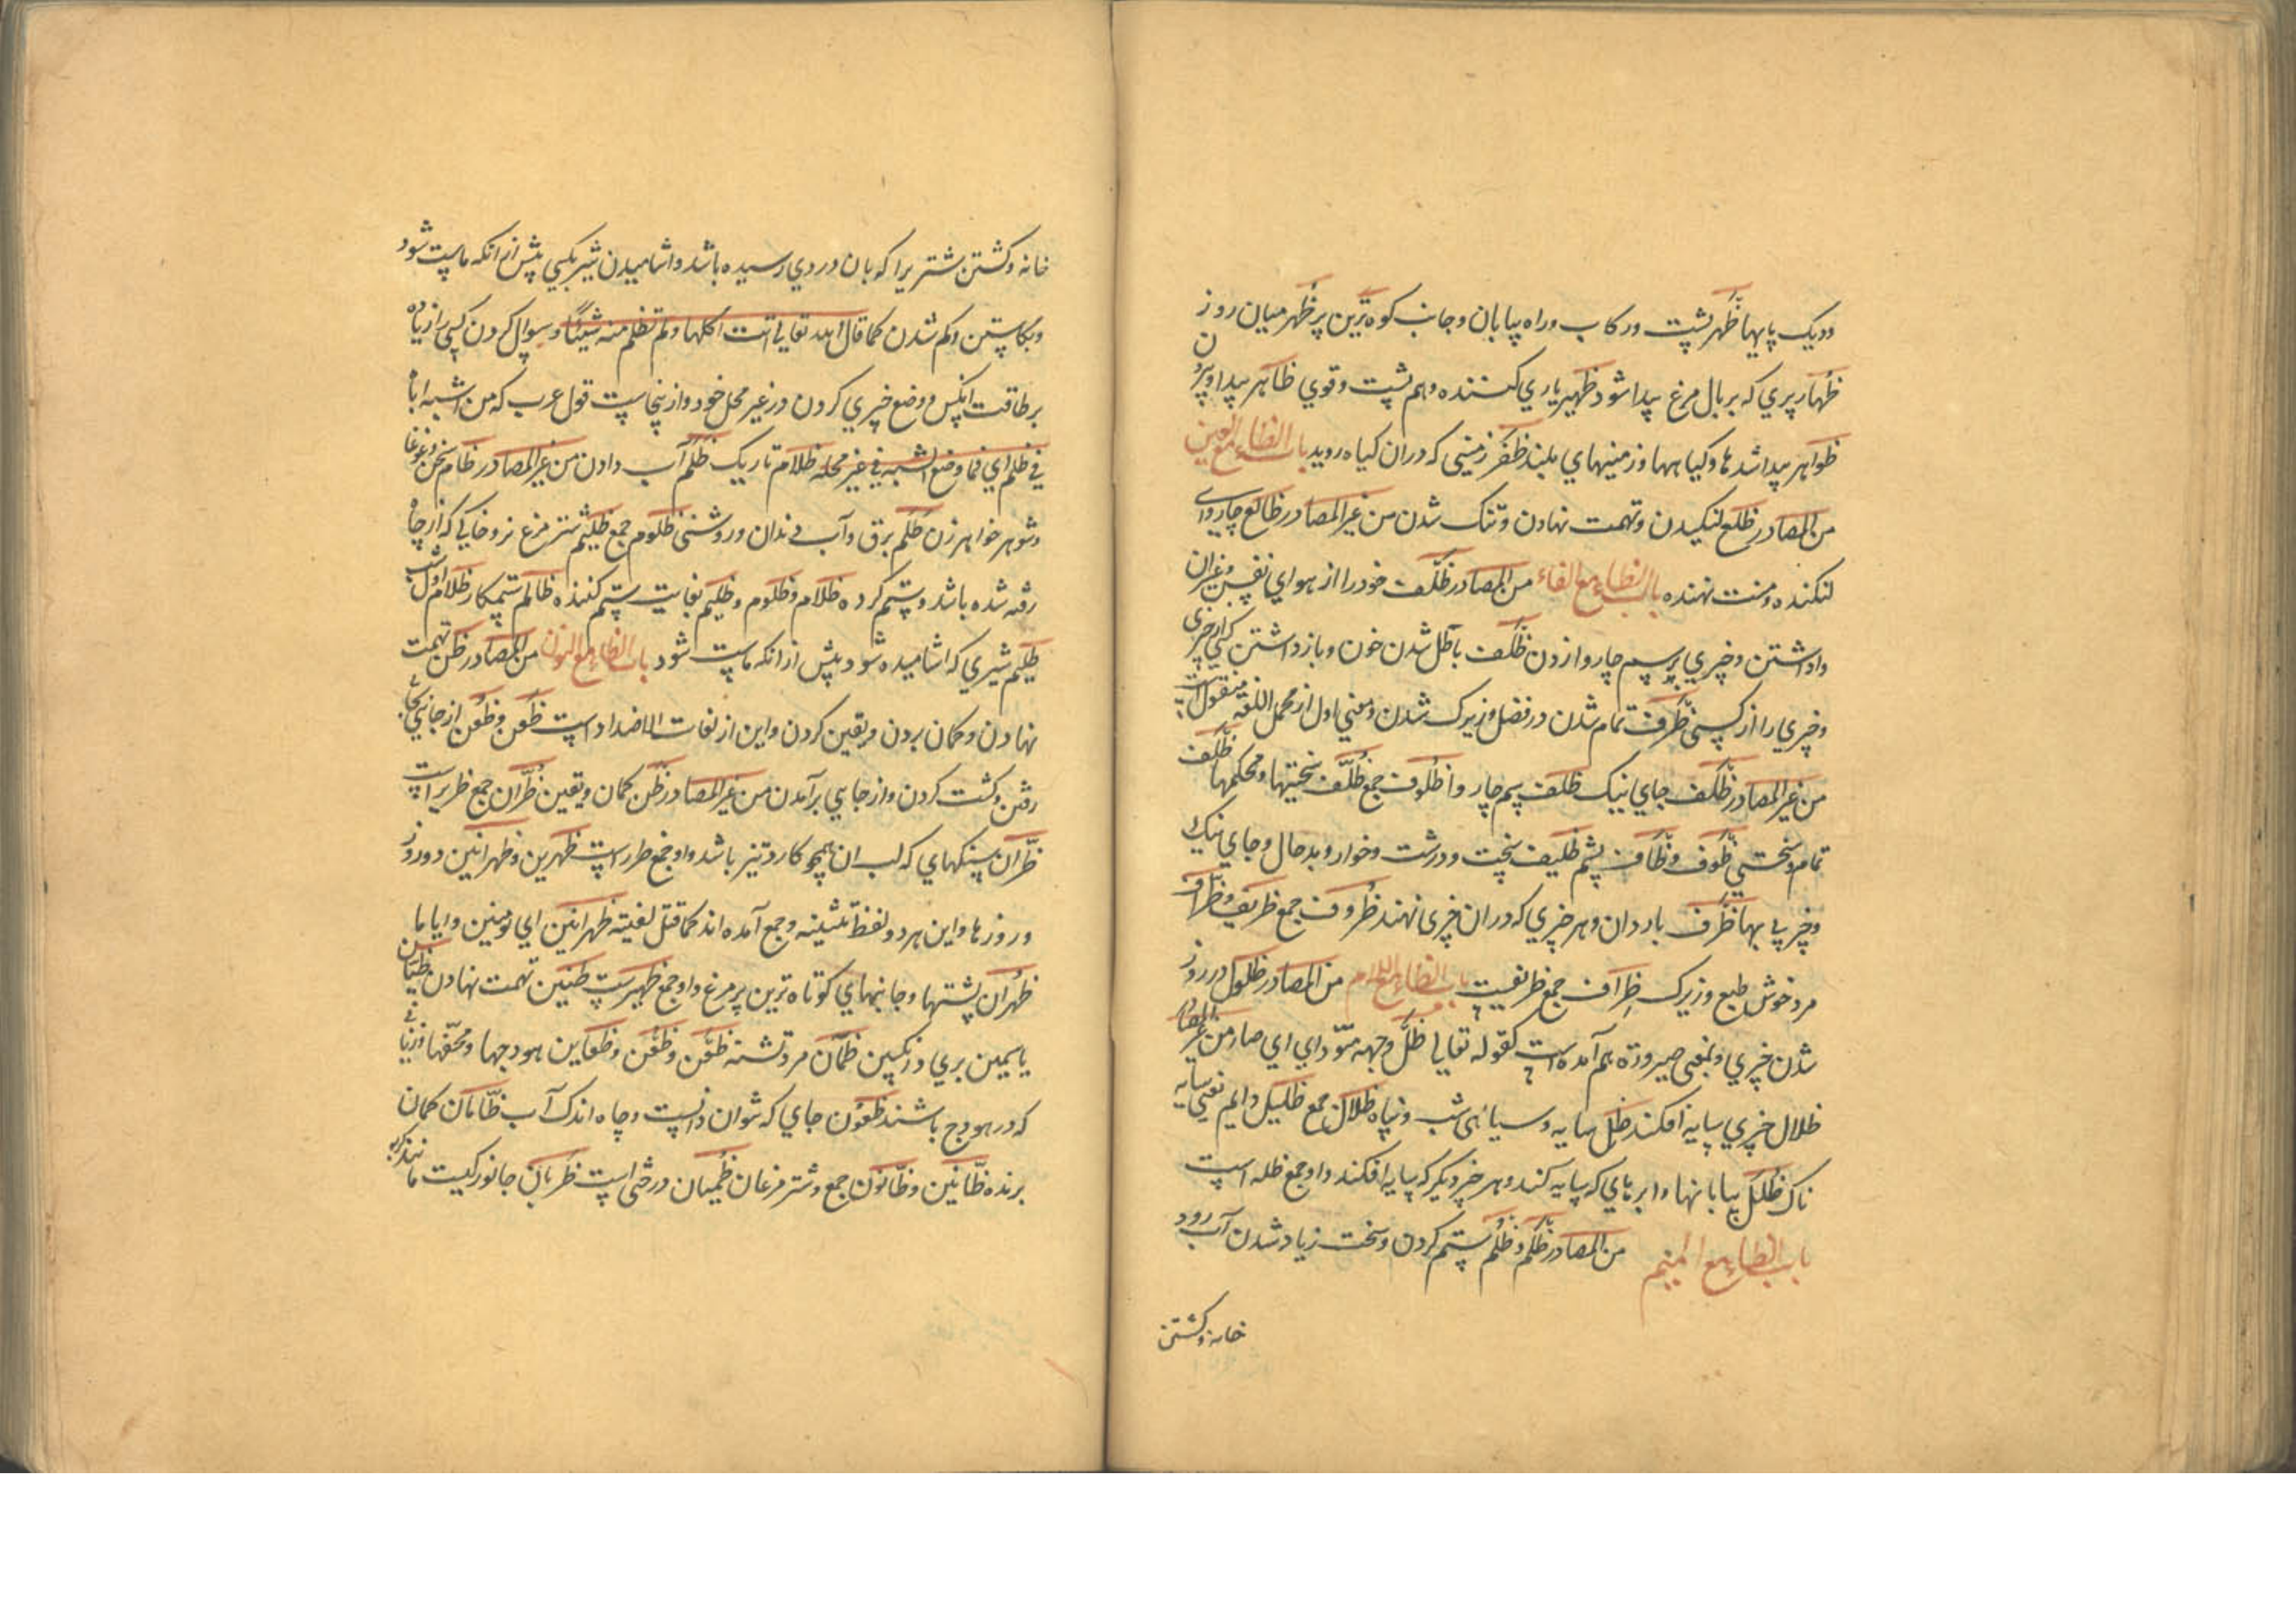 ودیک پایها ظَهر پشت ورکاب وراه بیابان وجانب کوه ترین پر ظهر میان روز
ظُهار پری که بر بال مرغ پیدا شود ظهیر یاری کننده وهم پشت وقوی ظاهر پیدا وبیرون
ظواهر پیدا شدها وکیاهها وزمینهای بلند ظفر زمینی که دران کیاه روید باب الظاء مع العین
من المصادر ظلع لنکیدن وتهمت نهادن وتنک شدن من غیر المصادر ظالع چاروای
لنکنده ومنت نهنده باب الظاء مع الفاء من المصادر ظلف خود را از هوای نفس
واداشتن وچیزی برسم چاروا زدن ظلف باطل شدن خون وبازداشتن کسی از چیزی
وچیزی را از کسی ظرف تمام شدن در فضل وزیرک شدن ومعنی اول از مجمل اللغه منقول است
من غیر المصادر ظلف جای نیک ظلف سم چاروا ظلوف جمع ظلف سختیها ومحکمها ظلف
تمام وسختی ظوف وظاف پشم ظلیف سخت ودرشت وخوار وبد حال وجای نیک
وچیز بی بها ظرف باردان وهر چیزی که دران چیزی نهند ظروف جمع ظریف وظراف
مرد خوش طبع وزیرک ظراف جمع ظریفست باب الظاء مع اللام من المصادر ظلول در روز
شدن چیزی وبمعنی صیرورة هم آمده است کقوله تعالی ظل وجهه مسودا ای صار من غیر المصادر
ظلال چیزی سایه افکند ظل سایه وسیاهی شب وپناه ظلال جمع ظلیل دایم یعنی سایه
ناک ظلل بیابانها وابرهای که سایه کند وهر چیز دیگر که سایه افکند واو جمع ظله است
باب الظاء مع المیم من المصادر ظلم وظلم ستم کردن وسخت زیاد شدن آب رود
خانه وکشتن
خانه وکشتن شتریرا که بان دردی رسیده باشد واشامیدن شیر یکسی پیش از انکه ماست شود
وبکاستن وکم شدن کما قال الله تعالی اتت اکلها ولم تظلم منه شیئا وسوال کردن کسی را زیاده
بر طاقت انکس ووضع چیزی کردن در غیر محل خود وازینجاست قول عرب که من اشبه اباه
فما ظلم ای فما وضع الشبه فی غیر محله ظلام تاریک ظلم آب دادن من غیر المصادر ظام سخن وغوغا
وشوهر خواهر زن ظلم برق وآب دندان وروشنی ظلوم جمع ظلیم شتر مرغ نر وخاکی که از چاه
رفته شده باشد وستم کرده ظلام وظلوم وظلیم بغایت ستم کننده ظالم ستمکار ظلام اول شب
ظلیم شیری که اشامیده شود پیش از انکه ماست شود باب الظاء مع النون من المصادر ظن تهمت
نهادن وکمان بردن ویقین کردن واین از لغات الاضداد است ظعن وظعن از جائی بجائی
رفتن وکشت کردن واز جایی برآمدن من غیر المصادر ظن کمان ویقین ظران جمع ظریر است
ظران سنکهای که لب ان همچو کارد تیز باشد واو جمع ظرر است ظهرین وظهرانین دو روز
وروزها واین هر دو لفظ تثنیه وجمع آمده اند کما قیل لقیته ظهرانین ای یومین وایاما
ظهران پشتها وجانبهای کوتاه ترین پر مرغ واو جمع ظهرست ظنین تهمت نهادن ظیان
یاسمین بری وانکبین ظمان مرد تشنه ظعن وظعن وظعاین هودجها ومحفها وزنانی
که در هودج باشند ظعون جای که نتوان دانست وچاه اندک آب ظانان کمان
برنده ظانین وظانون جمع وشتر مرغان ظمیان درختی است ظربان جانوریست مانند کربه